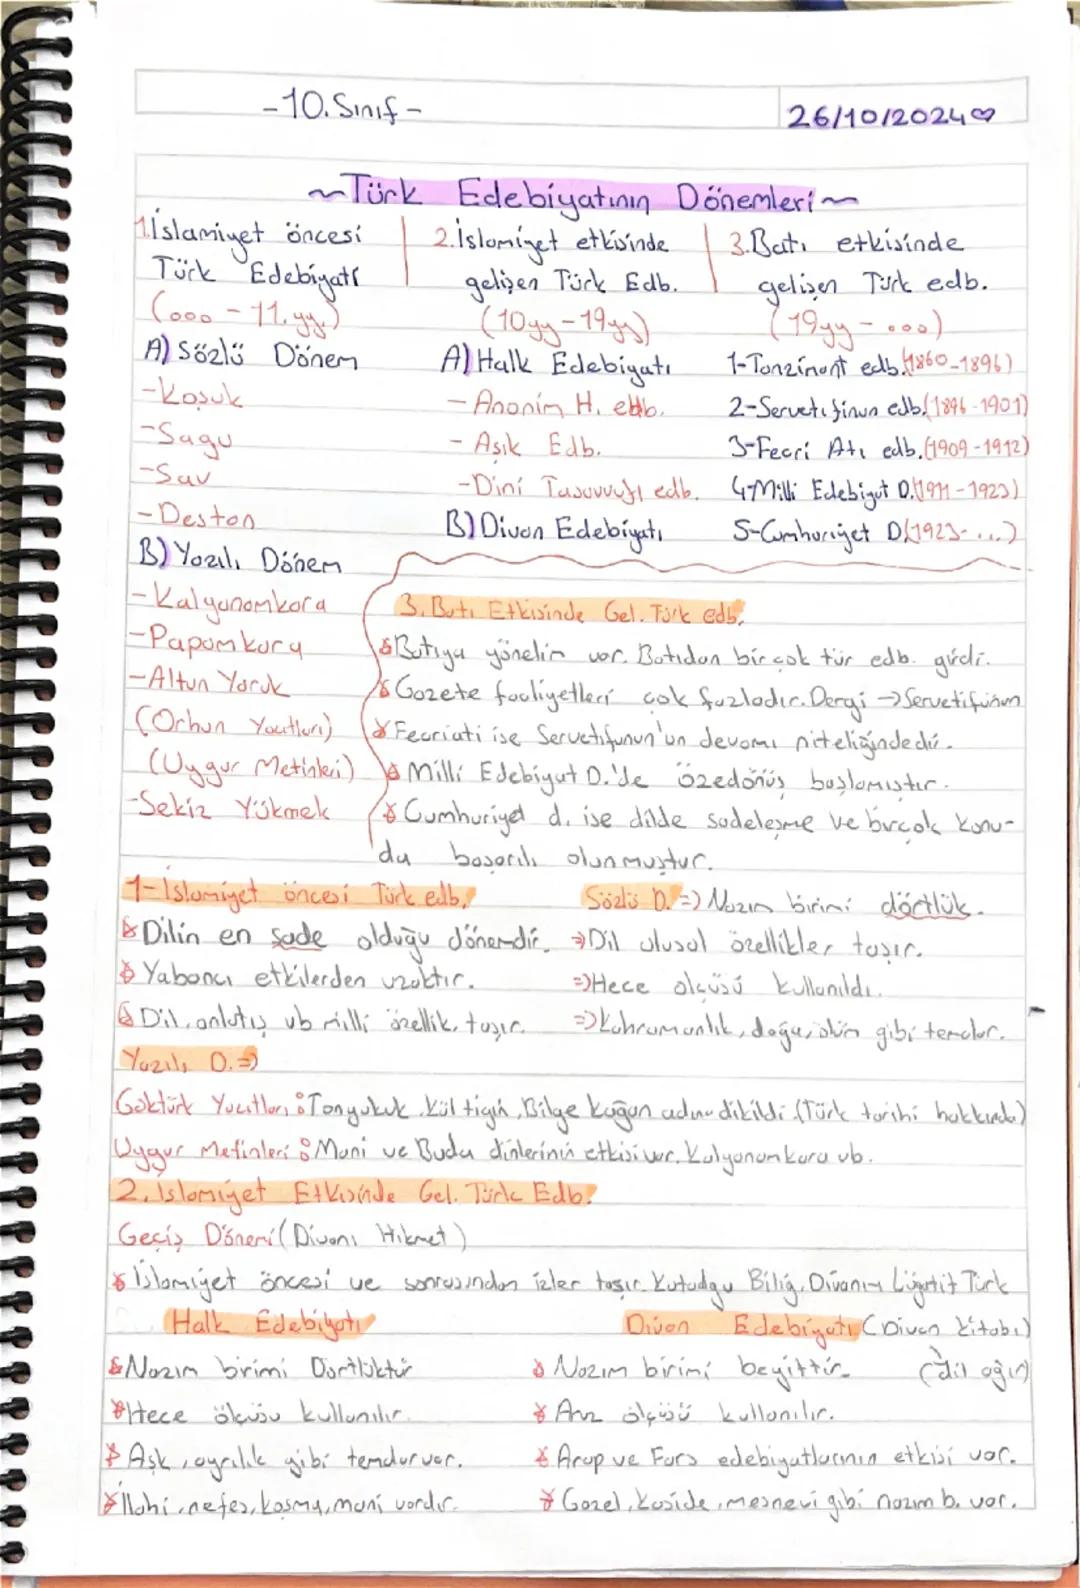 -10.Sınıf-
26/10/2024♡
~Türk Edebiyatının Dönemleri~
1.İslamiyet öncesi
Türk Edebiyatı
(ooo - 11.yy.)
A) Sözlü Dönem
-Koşuk
-Sagu
-Sav
-Destan
B) Yazılı Dönem
-Kalyanamkara
-Papamkara
-Altun Yaruk
(Orhun Yazıtları)
(Uygur Metinleri)
-Sekiz Yükmek
2.İslamiyet etkisinde
gelişen Türk Edb.
(10yy-19yy)
A) Halk Edebiyatı
-Anonim H. edb.
-Aşık Edb.
-Dini Tasavvufi edb.
B) Divan Edebiyatı
3.Batı etkisinde
gelişen Türk edb.
(19yy-...)
1-Tanzimant edb.(1860-1896)
2-Serveti finun edb.(1896-1901)
3-Fecri Atı edb.(1909-1912)
4-Milli Edebiyat D.(1911-1923)
5-Cumhuriyet D.(1923-...)
3. Batı Etkisinde Gel. Türk edb.
Batıya yönelim var. Batıdan birçok tür edb. girdi.
Gazete faaliyetleri çok fazladır. Dergi → Servetifünun
Fecriati ise Servetifunun'un devamı niteliğindedir.
Milli Edebiyat D.'de özedönüş başlamıştır.
Cumhuriyet d. ise dilde sadeleşme ve birçok konu-
da başarılı olunmuştur.
1-İslamiyet öncesi Türk edb.
Dilin en sade olduğu dönemdir.
Yabancı etkilerden uzaktır.
Dil, anlatış vb milli özellik. taşır.
Sözlü D. => Nazım birimi dörtlük.
=> Dil ulusal özellikler taşır.
=> Hece ölçüsü kullanıldı.
=> Kahramanlık, doğa, ölüm gibi temalar.
Yazılı D. =>
Göktürk Yazıtları: Tonyukuk, Kül tigin, Bilge Kağan adına dikildi. (Türk tarihi hakkında)
Uygur Metinleri: Mani ve Buda dinlerinin etkisi var. Kalyanamkara vb.
2. İslamiyet Etkisinde Gel. Türk Edb.
Geçiş Dönemi (Divanı Hikmet)
İslamiyet öncesi ve sonrasından izler taşır. Kutadgu Bilig, Divanım Lügatit Türk
Halk Edebiyatı
Nazım birimi Dörtlüktür
Hece ölçüsü kullanılır.
Aşk, ayrılık gibi temalar var.
İlahi, nefes, koşma, mani vardır.
Divan Edebiyatı (Divan kitabı)
Nazım birimi beyittir. (dil ağır)
Aruz ölçüsü kullanılır.
Arap ve Fars edebiyatlarının etkisi var.
Gazel, kaside, mesnevi gibi nazım b. var.